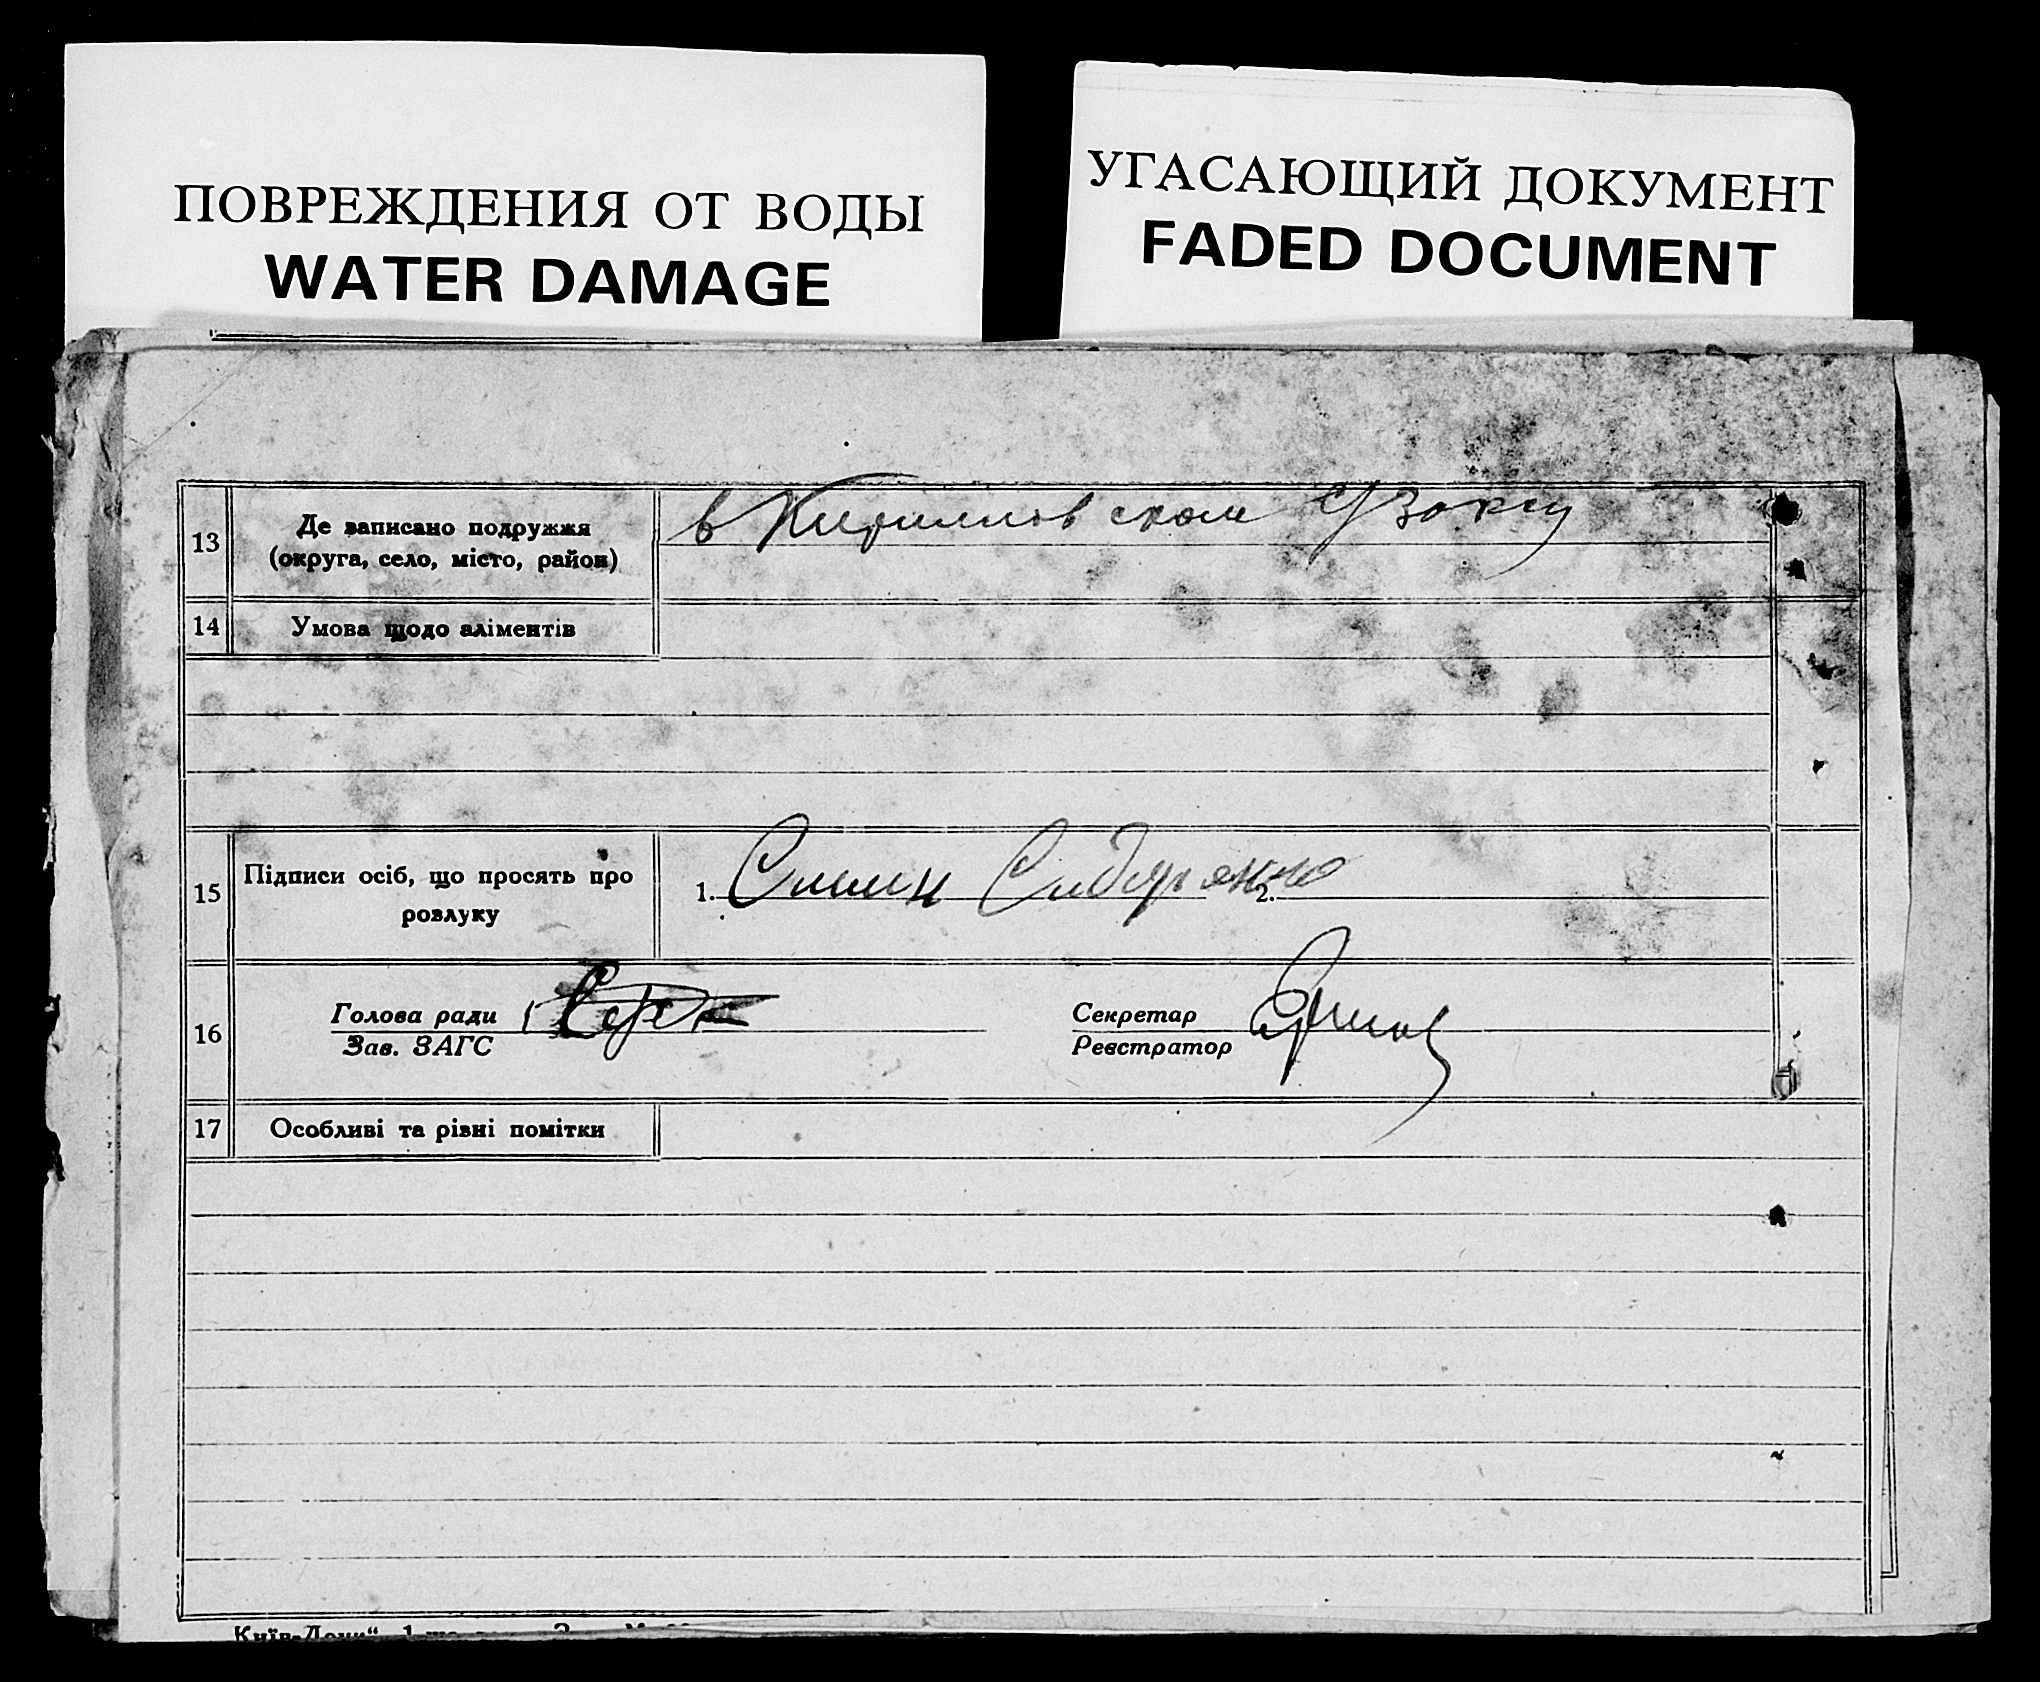 ПОВРЕЖДЕНИЯ ОТ ВОДЫ
WATER DAMAGE
УГАСАЮЩИЙ ДОКУМЕНТ
FADED DOCUMENT
13
Де записано подружжя
(округа, село, місто, район)
в Кирилловском
14
Умова щодо аліментів
15
Підписи осіб, що просять про
розлуку
1.
2.
16
Голова ради
Зав. ЗАГС
Секретар
Реєстратор
17
Особливі та різні помітки